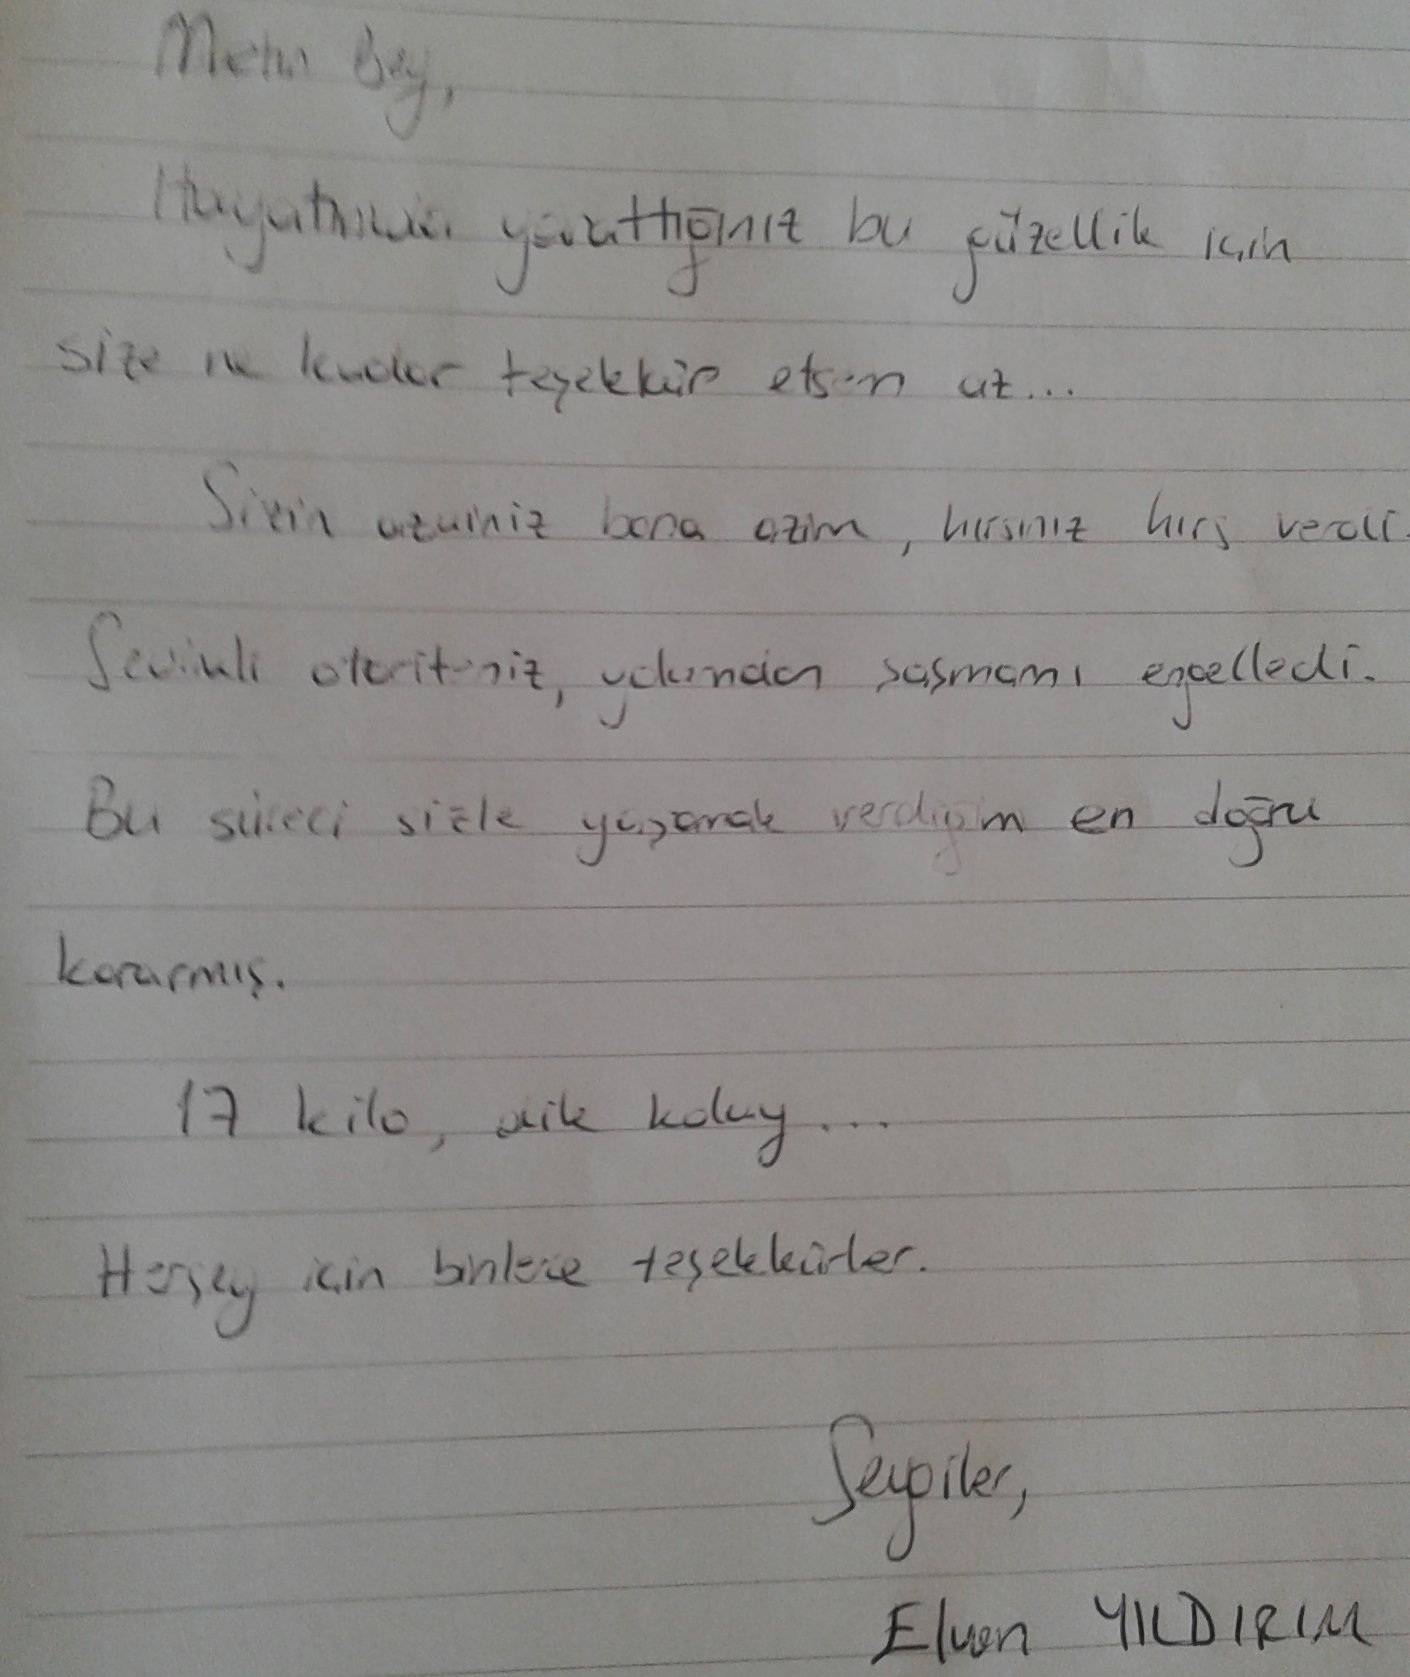 Metin Bey,
Hayatımda yarattığınız bu güzellik için
size ne kadar teşekkür etsem az...
Sizin azminiz bana azim, hırsınız hırs verdi.
Sevimli otoriteniz, yolumdan şaşmamı engelledi.
Bu süreci sizle yaşamak verdiğim en doğru
kararmış.
17 kilo, dile kolay...
Herşey için binlerce teşekkürler.
Sevgiler,
Elvan YILDIRIM